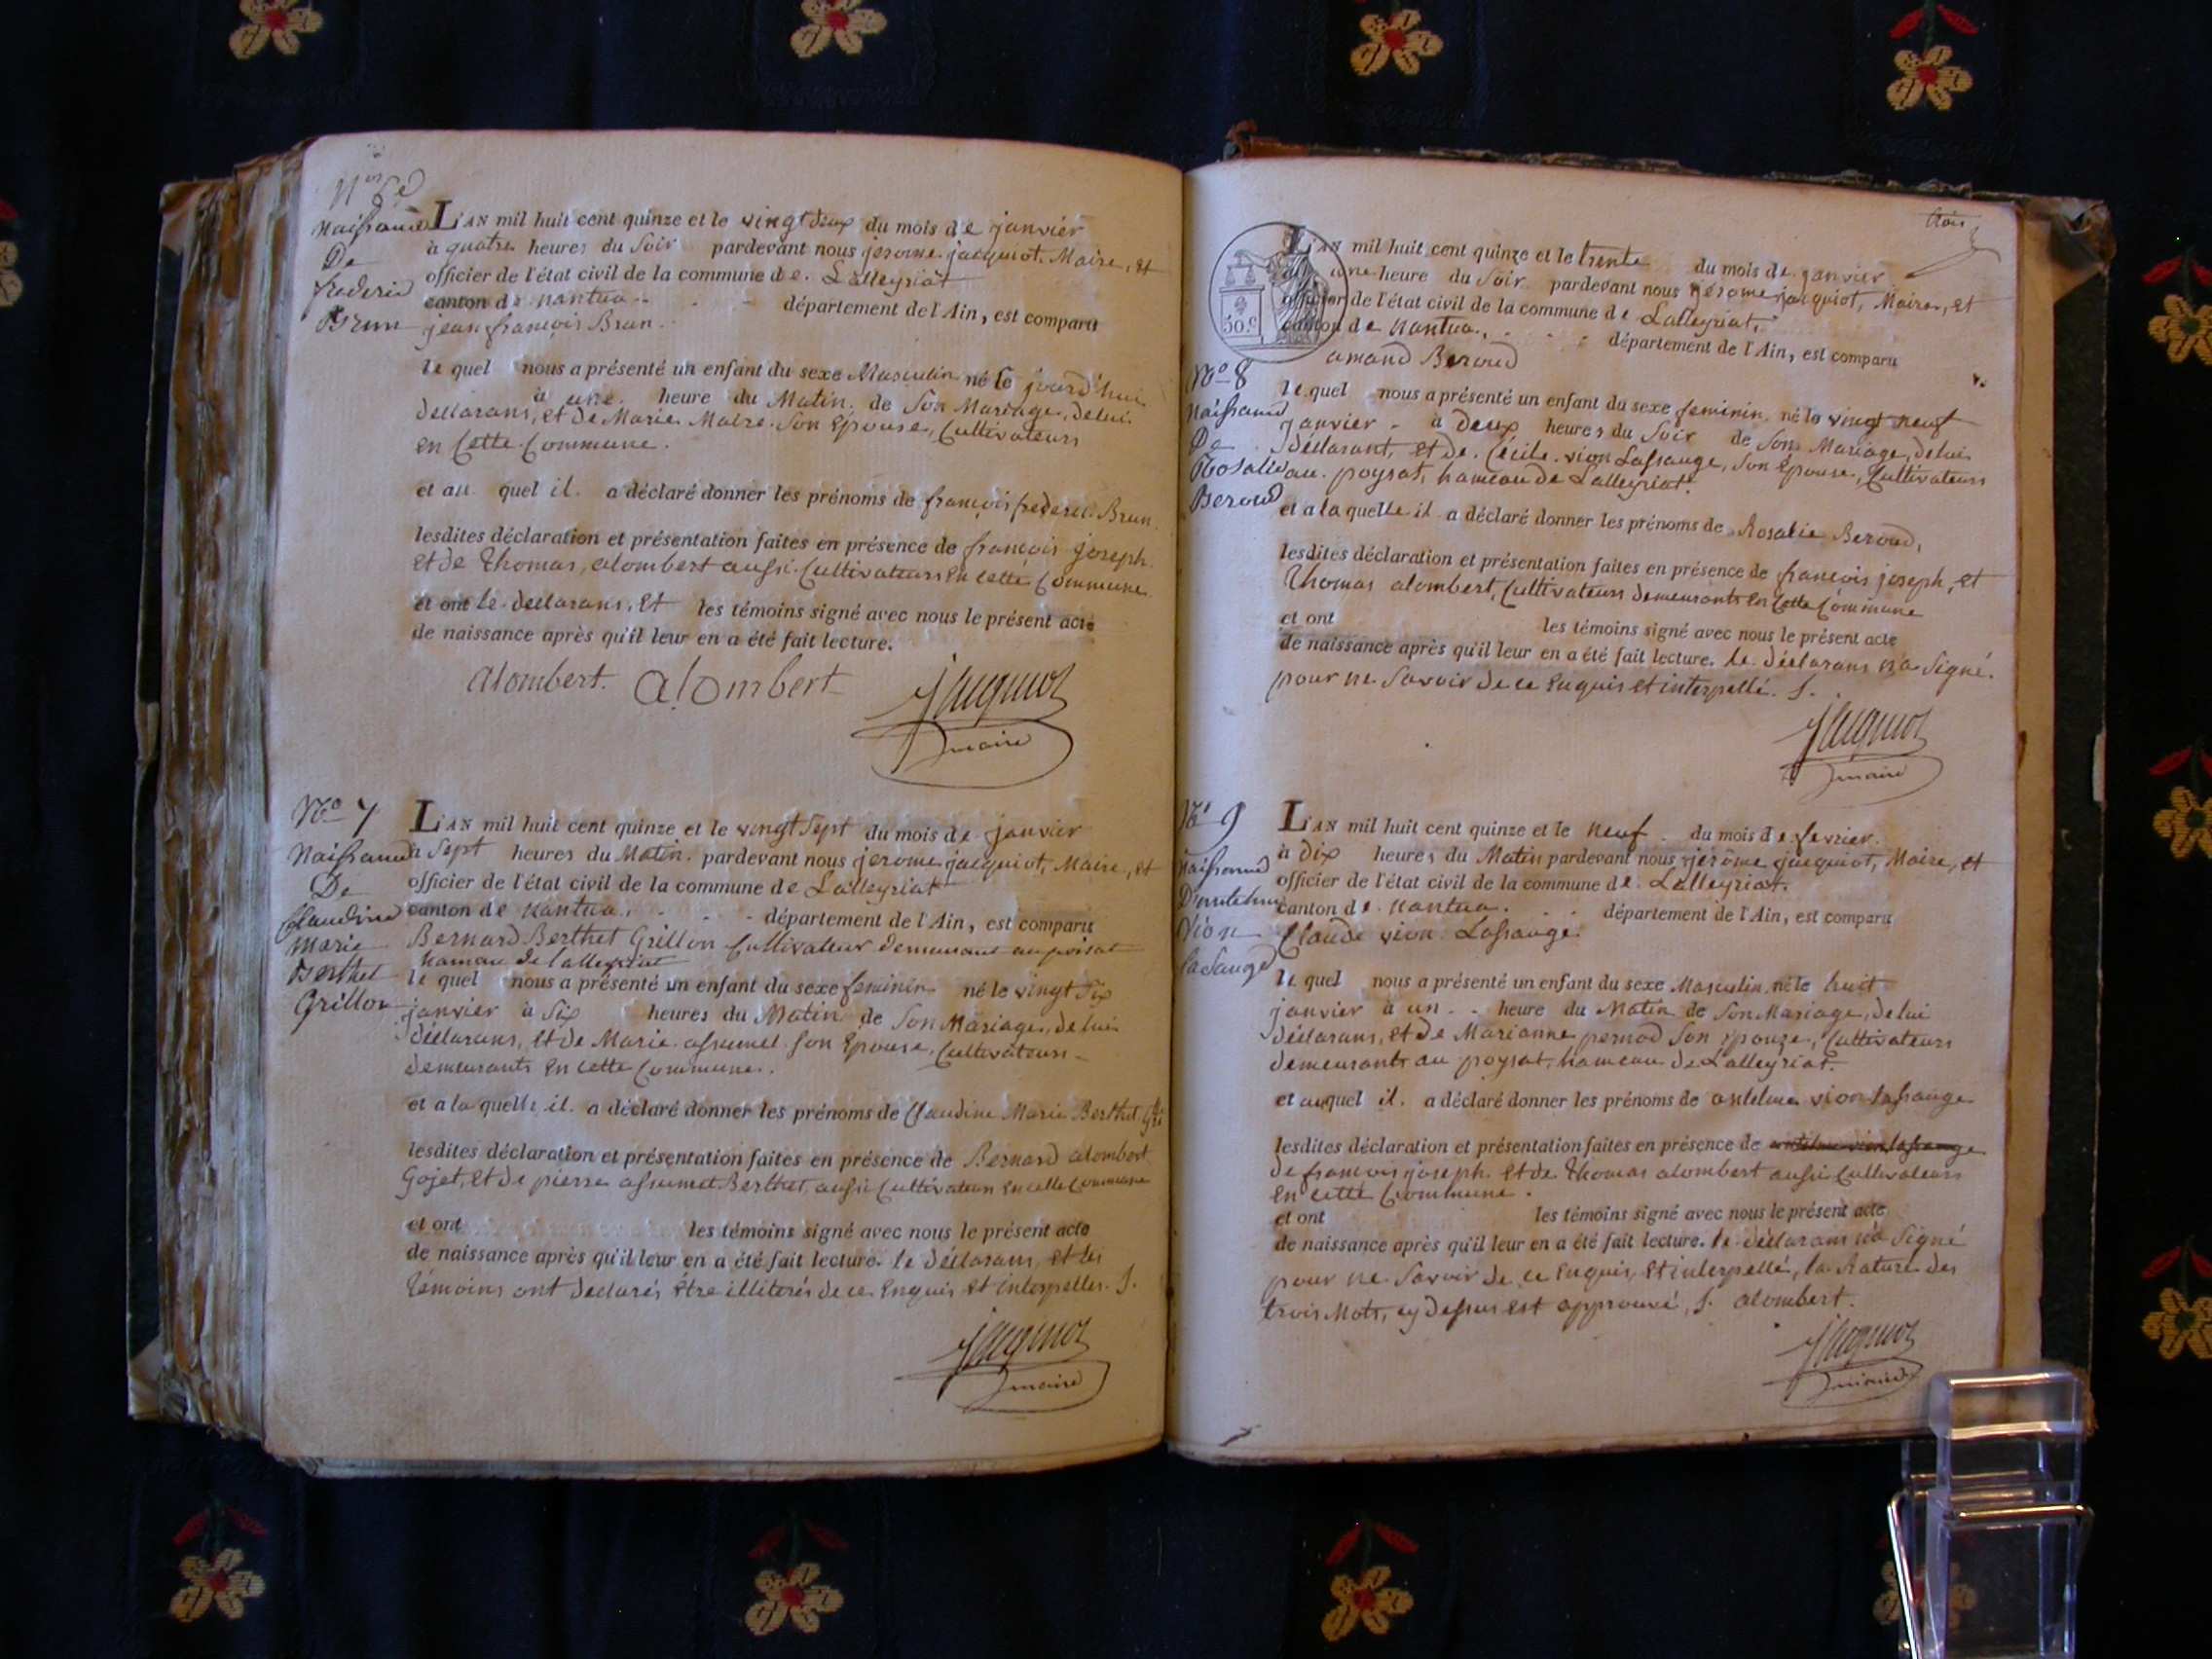 Nos 6e
Naissance
De
frederic
Brun
L'AN mil huit cent quinze et le vingt deux du mois de janvier
à quatre heures du soir pardevant nous jerome jacquiot, Maire, et
officier de l'état civil de la commune de Lalleyriat
canton de nantua département de l'Ain, est comparu
jean françois Brun
le quel nous a présenté un enfant du sexe Masculin né le jourd'hui
à une heure du Matin, de Son Mariage, de lui
declarans, et de Marie Maire Son Epouse, Cultivateurs
en Cette Commune.
et au quel il a déclaré donner les prénoms de françois frederic Brun
lesdites déclaration et présentation faites en présence de francois joseph
et de Thomas, alombert aussi Cultivateurs en cette Commune
et ont le declarans, et les témoins signé avec nous le présent acte
de naissance après qu'il leur en a été fait lecture.
alombert. alombert Jacquiot
maire
No 7
Naissance
De
Claudine
Marie
Berthet
Grillon
L'AN mil huit cent quinze et le vingt sept du mois de janvier
a sept heures du Matin pardevant nous jerome jacquiot, Maire, et
officier de l'état civil de la commune de Lalleyriat
canton de nantua. département de l'Ain, est comparu
Bernard Berthet Grillon Cultivateur demeurant au poisat
hamau de lalleyriat
le quel nous a présenté un enfant du sexe feminin né le vingt six
janvier à six heures du Matin de Son Mariage, de lui
déclarans, et de Marie assumel Son Epouse, Cultivateurs
demeurants en cette Commune.
et a la quelle il a déclaré donner les prénoms de Claudine Marie Berthet
lesdites déclaration et présentation faites en présence de Bernard alombert
Gojet, et de pierre assumel Berthet, aussi Cultivateurs en cette Commune
et ont les témoins signé avec nous le présent acte
de naissance après qu'il leur en a été fait lecture. le déclarans et les
témoins ont declarés être illiterés de ce enquis et interpellés. J.
Jacquiot
maire
trois
50.c
L'AN mil huit cent quinze et le trente du mois de janvier
à une heure du soir pardevant nous jérome jacquiot, Maire, et
officier de l'état civil de la commune de Lalleyriat,
canton de nantua. département de l'Ain, est comparu
amand Beroud
No 8
Naissance
De
Rosalie
Beroud
le quel nous a présenté un enfant du sexe feminin né le vingt neuf
janvier à deux heures du soir de Son Mariage, de lui
déclarant, et de Cécile vion Lassauge, Son Epouse, Cultivateurs
au poysat, hameau de Lalleyriat.
et a la quelle il a déclaré donner les prénoms de Rosalie Beroud,
lesdites déclaration et présentation faites en présence de françois joseph, et
Thomas alombert, Cultivateurs demeurants en Cette Commune
et ont les témoins signé avec nous le présent acte
de naissance après qu'il leur en a été fait lecture. le déclarans n'a Signé
pour ne Savoir de ce enquis et interpellé. J.
Jacquiot
maire
No 9
Naissance
D'antelme
Vion
lasauge
L'AN mil huit cent quinze et le neuf du mois de fevrier
à dix heures du Matin pardevant nous jérôme jacquiot, Maire, et
officier de l'état civil de la commune de Lalleyriat.
canton de nantua. département de l'Ain, est comparu
Claude vion Lassauge
le quel nous a présenté un enfant du sexe Masculin né le huit
janvier à un heure du Matin de Son Mariage, de lui
déclarans, et de Marianne pernod Son epouze, Cultivateurs
demeurants au poysat, hameau de Lalleyriat.
et auquel il a déclaré donner les prénoms de antelme vion lassauge
lesdites déclaration et présentation faites en présence de antelme vion lassauge
de francois joseph et de Thomas alombert aussi Cultivateurs
en cette Commune.
et ont les témoins signé avec nous le présent acte
de naissance après qu'il leur en a été fait lecture. le déclarans n'a Signé
pour ne Savoir de ce enquis, et interpellé, la Rature des
trois Mots, cy dessus est approuvé, J. alombert.
Jacquiot
maire